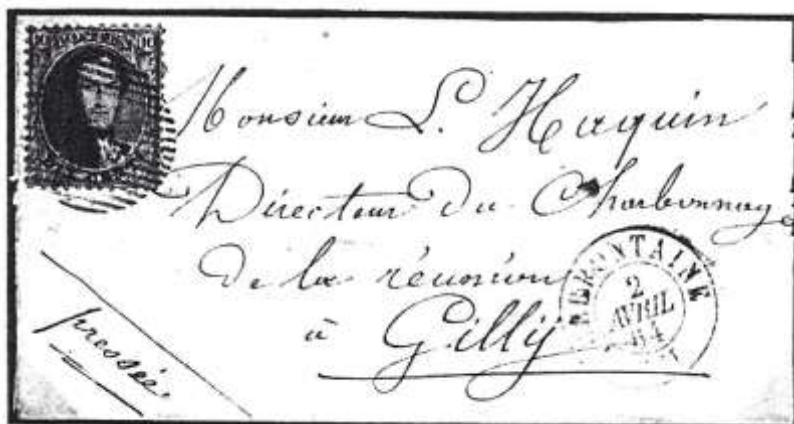 Monsieur L. Haquin
Directeur du Charbonnage
de la réunion
à Gilly
pressée.
2
AVRIL
64